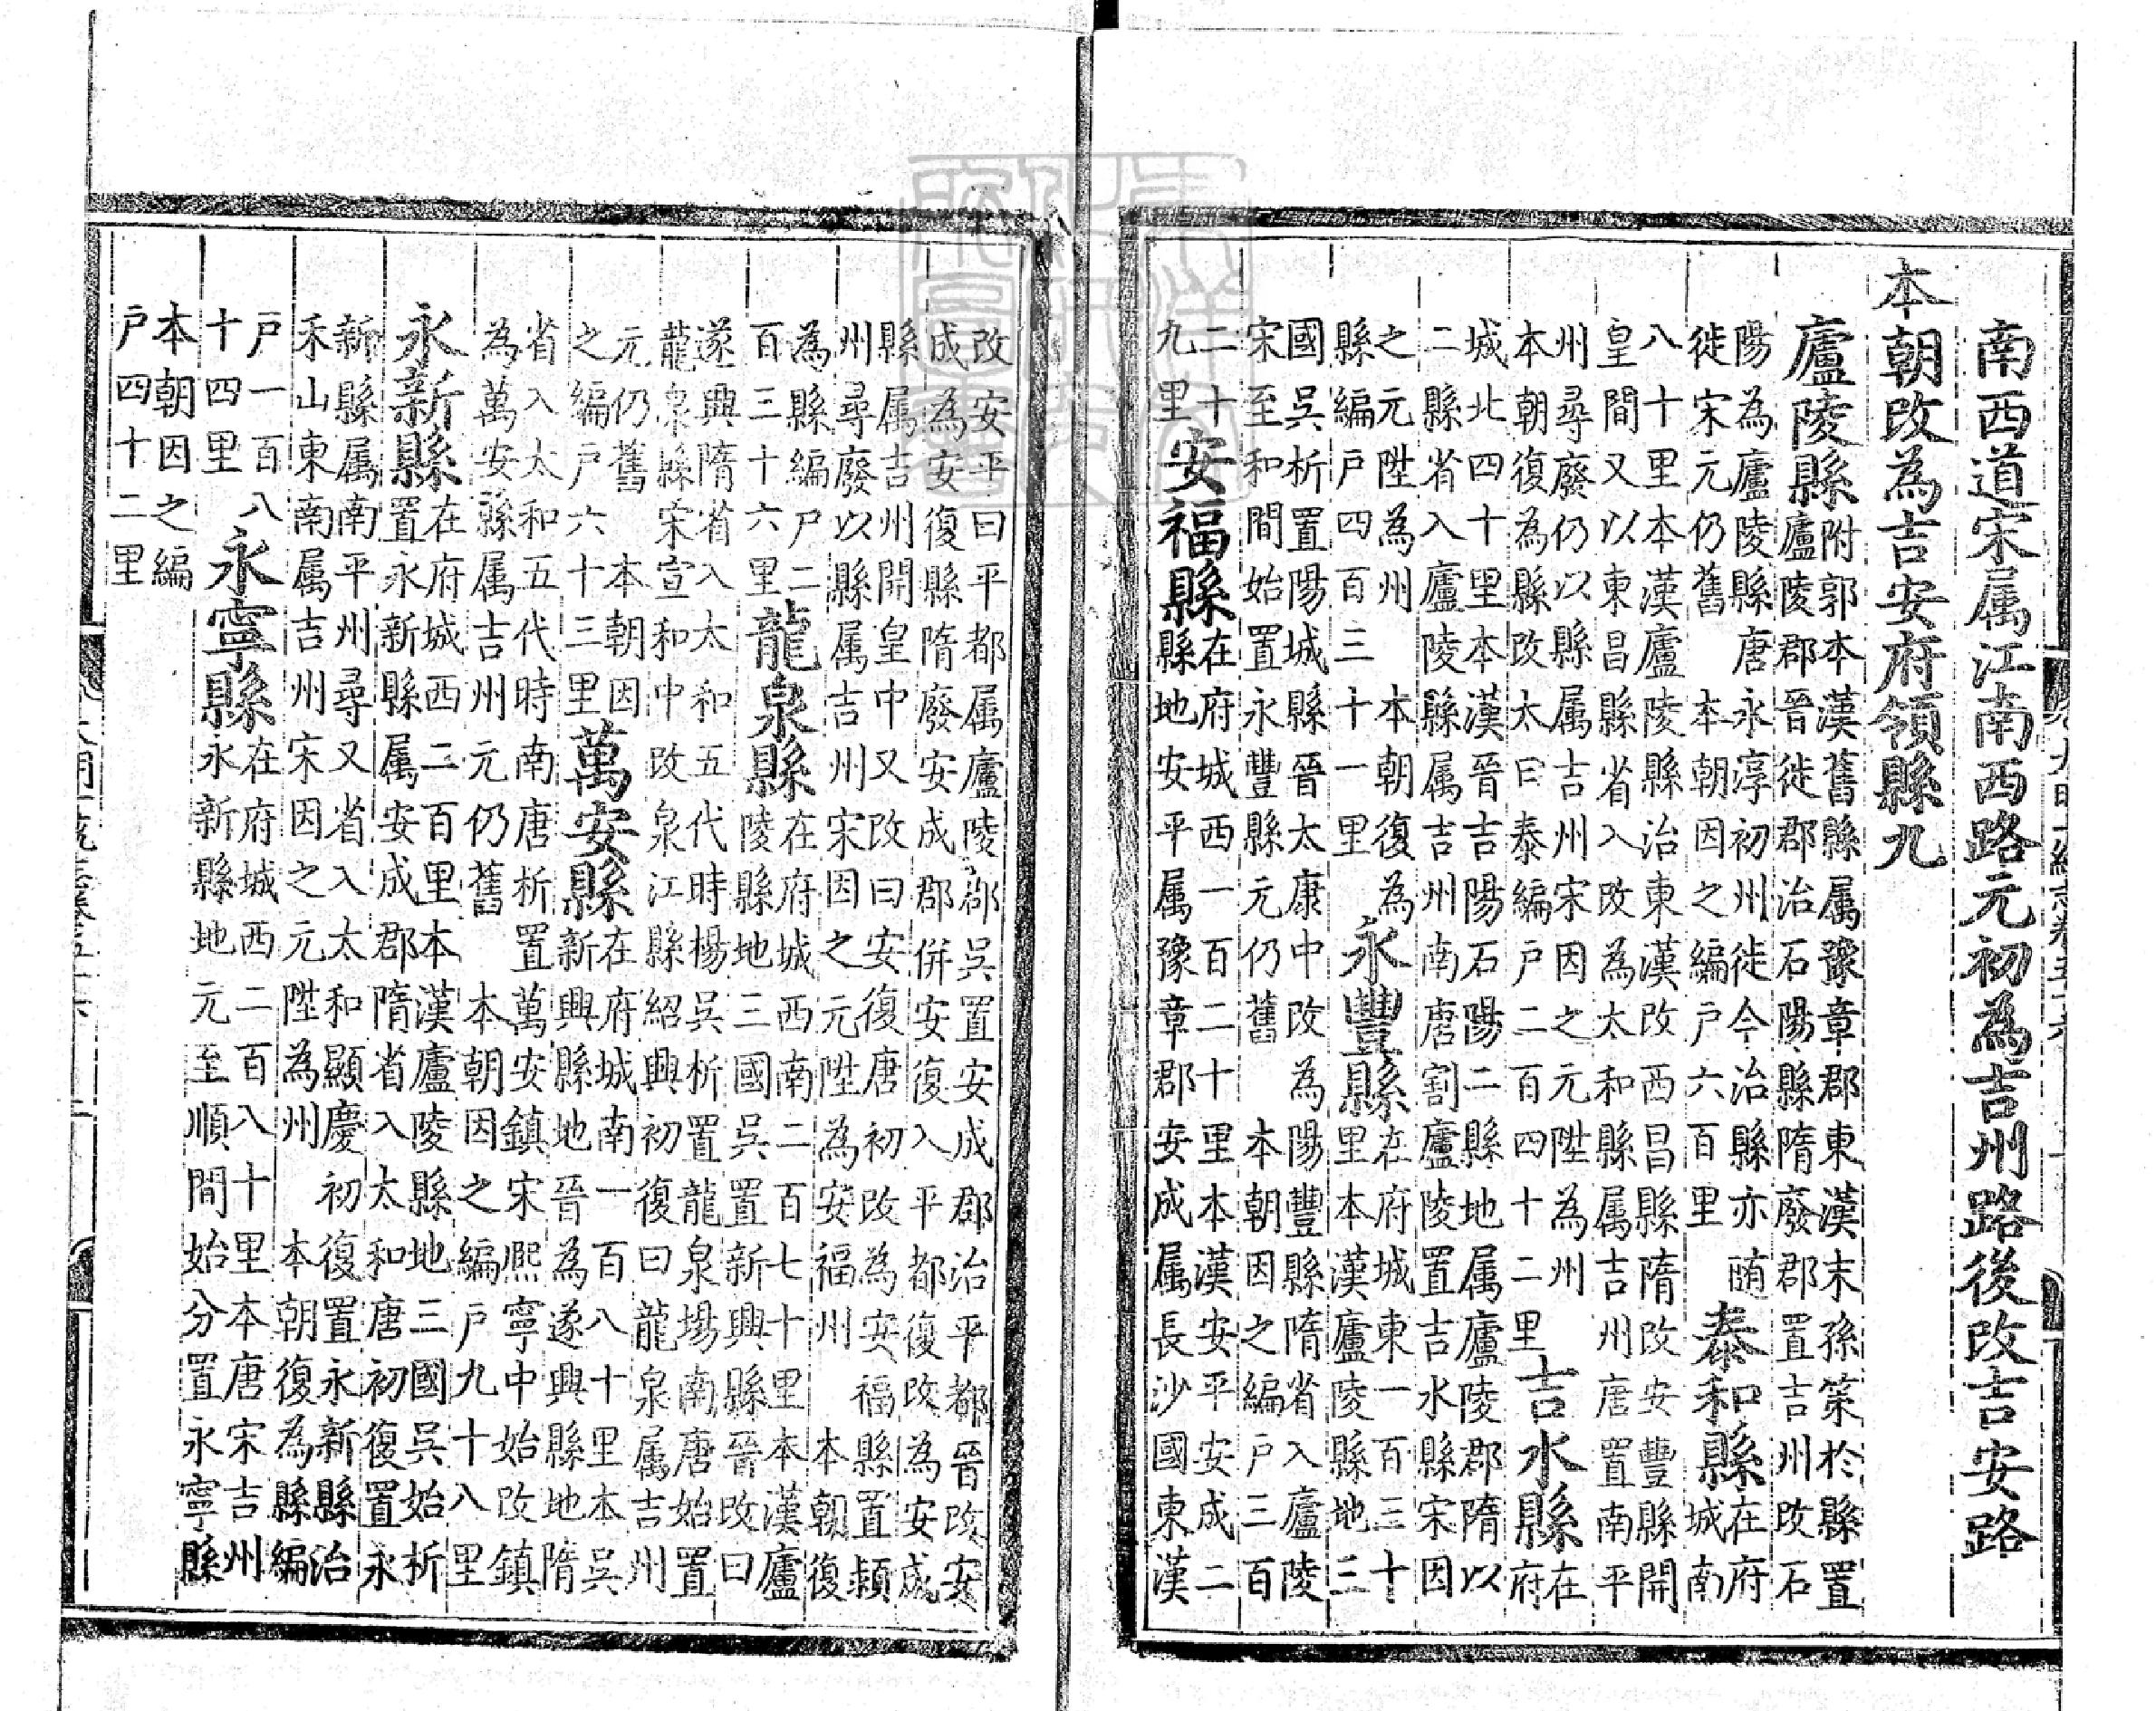 南西道宋属江南西路元初為吉州路後改吉安路
本朝改為吉安府領縣九
廬陵縣
附郭本漢舊縣属豫章郡東漢末孫策於縣置
廬陵郡晉徙郡治石陽縣隋廢郡置吉州改石
陽為廬陵縣唐永淳初州徙今治縣亦
徙宋元仍舊 本朝因之編戶六百里
泰和縣
在府
城南
八十里本漢廬陵縣治東漢改西昌縣隋改安豐縣開
皇間又以東昌縣省入改為太和縣属吉州唐置南平
州尋廢仍以縣属吉州宋因之元陞為州
本朝復為縣改太曰泰編戶二百四十二里
吉水縣
在
府
城北四十里本漢晉吉陽石陽二縣地属廬陵郡隋以
二縣省入廬陵縣属吉州南唐割廬陵置吉水縣宋因
之元陞為州 本朝復為
縣編戶四百三十一里
永豐縣
在府城東一百三十
里本漢廬陵縣地三
國吳析置陽城縣晉太康中改為陽豐縣隋省入廬陵
宋至和間始置永豐縣元仍舊 本朝因之編戶三百
二十
九里
安福縣
在府城西一百二十里本漢安平安成二
縣地安平属豫章郡安成属長沙國東漢
改安平曰平都属廬陵郡吳置安成郡治平都晉改安
成為安復縣隋廢安成郡併安復入平都復改為安成
縣属吉州開皇中又改曰安復唐初改為安福縣置潁
州尋廢以縣属吉州宋因之元陞為安福州 本朝復
為縣編戶二
百三十六里
龍泉縣
在府城西南二百七十里本漢廬
陵縣地三國吳置新興縣晉改曰
遂興隋省入太和五代時楊吳析置龍泉場南唐始置
龍泉縣宋宣和中改泉江縣紹興初復曰龍泉属吉州
元仍舊 本朝因
之編戶六十三里
萬安縣
在府城南一百八十里本吳
新興縣地晉為遂興縣地隋
省入太和五代時南唐析置萬安鎮宋熙寧中始改鎮
為萬安縣属吉州元仍舊 本朝因之編戶九十八里
永新縣
在府城西二百里本漢廬陵縣地三國吳始析
置永新縣属安成郡隋省入太和唐初復置永
新縣属南平州尋又省入太和顯慶初復置永新縣治
禾山東南属吉州宋因之元陞為州 本朝復為縣編
戶一百八
十四里
永寧縣
在府城西二百八十里本唐宋吉州
永新縣地元至順間始分置永寧縣
本朝因之編
戶四十二里